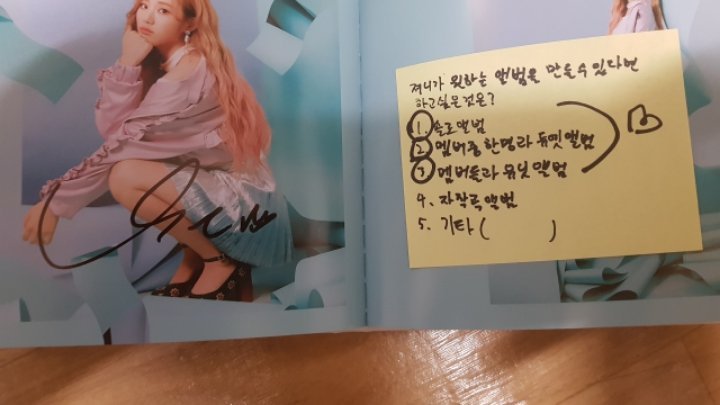 져니가 원하는 앨범을 만들수있다면
하고싶은것은?
1. 솔로앨범
2. 멤버중 한명과 듀엣앨범
3. 멤버들과 유닛앨범
4. 자작곡앨범
5. 기타 (          )